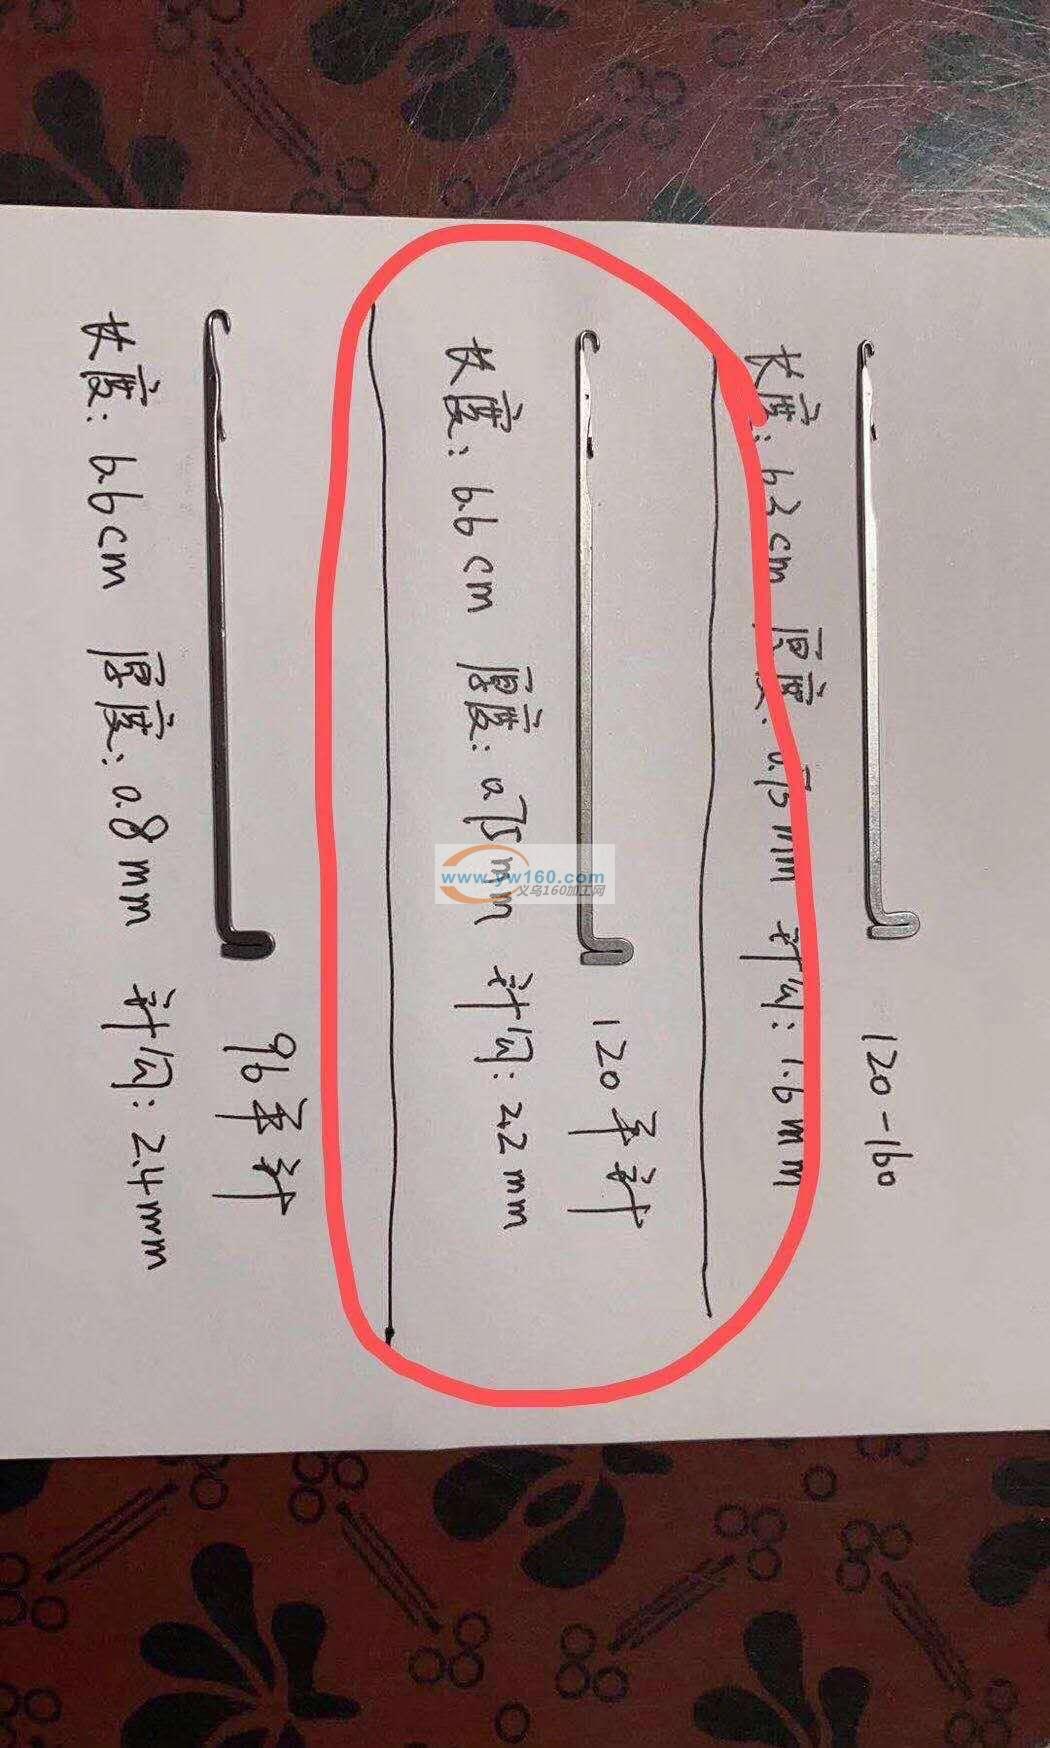 120-160
长度: 6.3cm 厚度: 0.75mm 针勾: 1.6mm
120 针
长度: 6.6cm 厚度: 0.75mm 针勾: 2.2mm
www.yw160.com
义乌160加工网
96 针
长度: 6.6cm 厚度: 0.8mm 针勾: 2.4mm